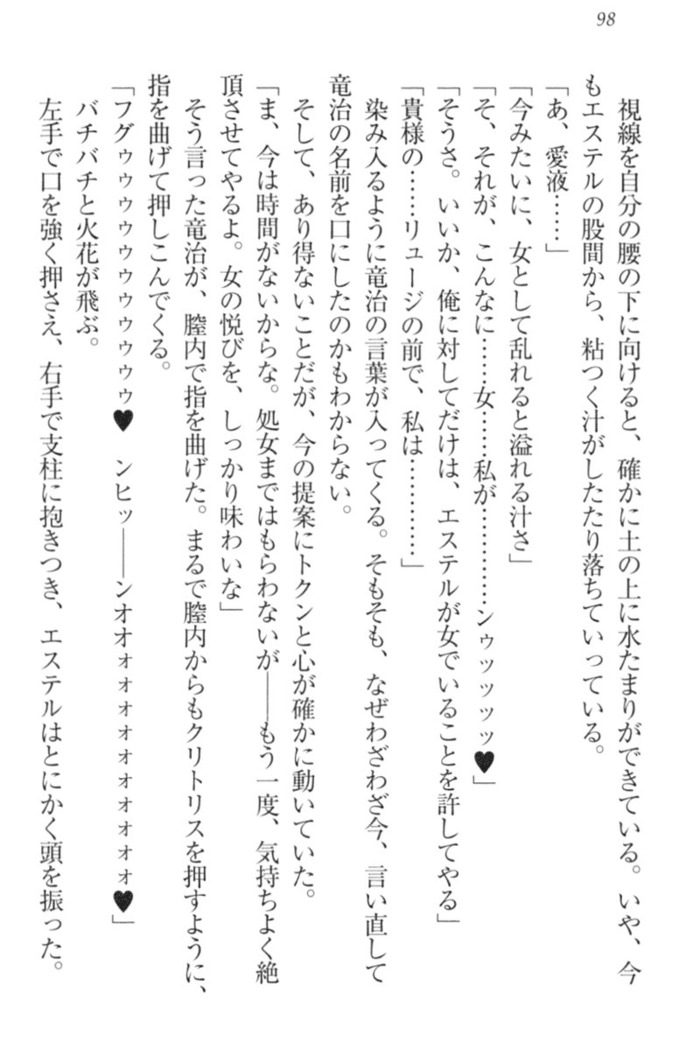 98
視線を自分の腰の下に向けると、確かに土の上に水たまりができている。いや、今
もエステルの股間から、粘つく汁がしたたり落ちていっている。
「あ、愛液……」
「今みたいに、女として乱れると溢れる汁さ」
「そ、それが、こんなに……女……私が…………ンゥッッッッ♥」
「そうさ。いいか、俺に対してだけは、エステルが女でいることを許してやる」
「貴様の……リュージの前で、私は…………」
染み入るように竜治の言葉が入ってくる。そもそも、なぜわざわざ今、言い直して
竜治の名前を口にしたのかもわからない。
そして、あり得ないことだが、今の提案にトクンと心が確かに動いていた。
「ま、今は時間がないからな。処女まではもらわないが――もう一度、気持ちよく絶
頂させてやるよ。女の悦びを、しっかり味わいな」
そう言った竜治が、膣内で指を曲げた。まるで膣内からもクリトリスを押すように、
指を曲げて押しこんでくる。
「フグゥゥウウウウウウゥゥゥ♥　ンヒッ――ンオオォォオオオオオオォォ♥」
バチバチと火花が飛ぶ。
左手で口を強く押さえ、右手で支柱に抱きつき、エステルはとにかく頭を振った。